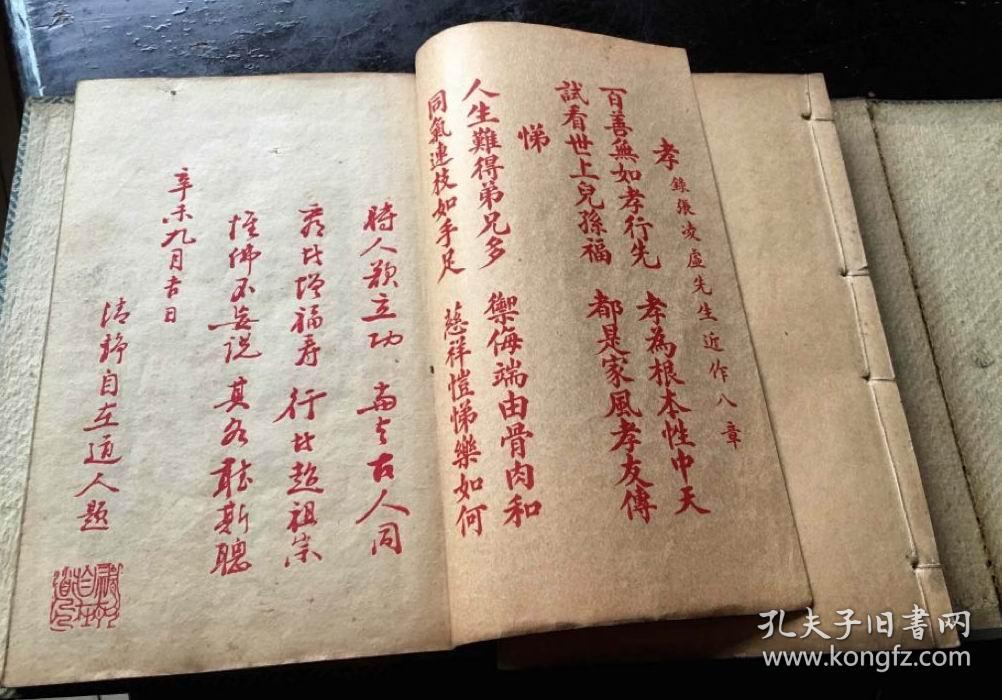 孝 錄張凌虛先生近作八章
百善無如孝行先 孝為根本性中天
試看世上兒孫福 都是家風孝友傳
悌
人生難得弟兄多 禦侮端由骨肉和
同氣連枝如手足 慈祥愷悌樂如何
時人欲立功 當與古人同
有此增福壽 行此超祖宗
惟佛不妄說 其各聽斯聰
辛未九月吉日
清靜自在道人題
孔夫子旧书网
www.kongfz.com